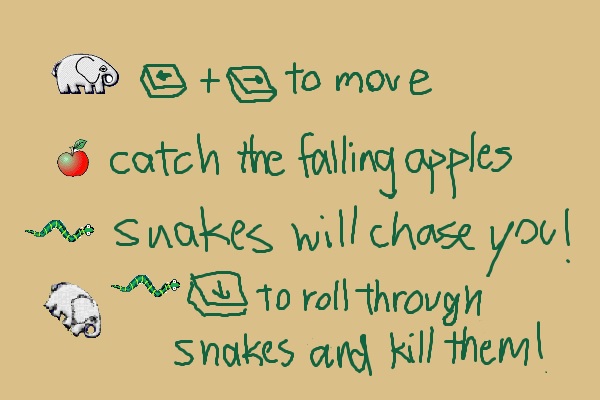 ← + → to move
catch the falling apples
snakes will chase you!
↓ to roll through
snakes and kill them!